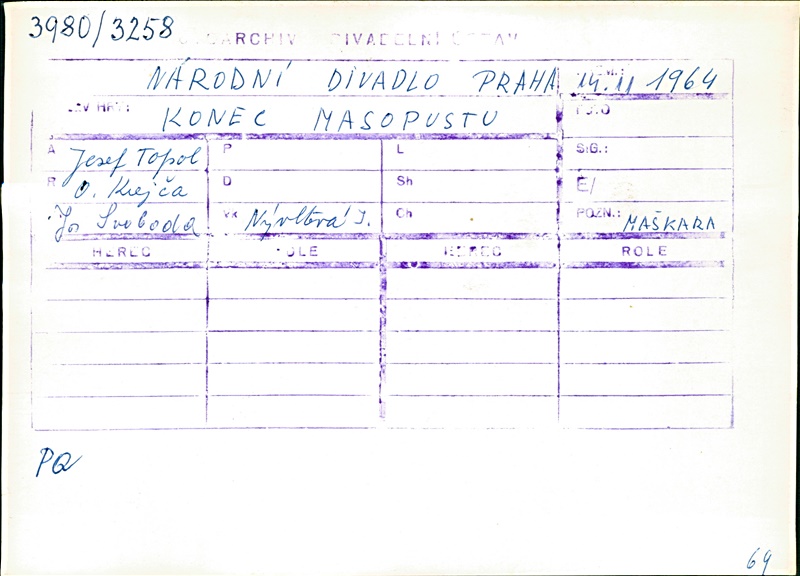 3980/3258
ARCHIV DIVADELNÍ ÚSTAV
NÁRODNÍ DIVADLO PRAHA 14.11 1964
KONEC MASOPUSTU
A Josef Topol P L SIG.:
R O. Krejča D Sh E/
Jos Svoboda Vk Nývltová J. Ch POZN.: MAŠKARA
HEREC ROLE HEREC ROLE
PQ
69